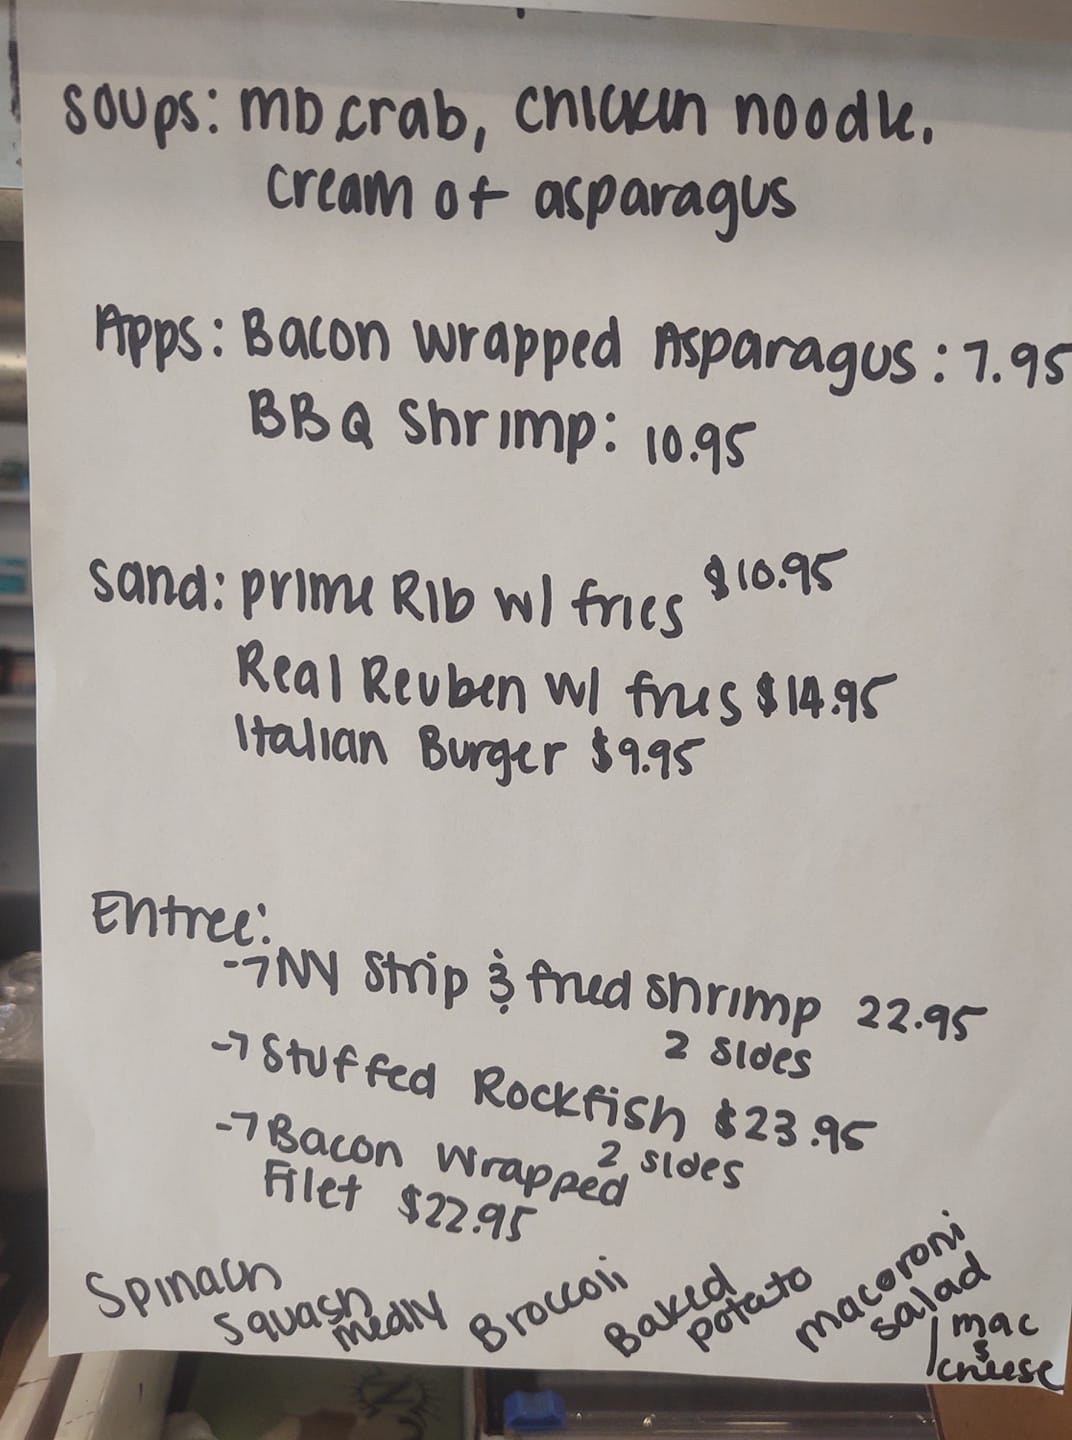 Soups: MD crab, chicken noodle.
cream of asparagus
Apps: Bacon wrapped Asparagus: 7.95
BBQ Shrimp: 10.95
Sand: prime Rib w/ fries $10.95
Real Reuben w/ fries $14.95
Italian Burger $9.95
Entree:
-7 NY Strip & fried shrimp 22.95
2 sides
-7 Stuffed Rockfish $23.95
2 sides
-7 Bacon wrapped
Filet $22.95
Spinach
Squash
medly
Broccoli
Baked
potato
macoroni
salad
/ mac
&
cheese